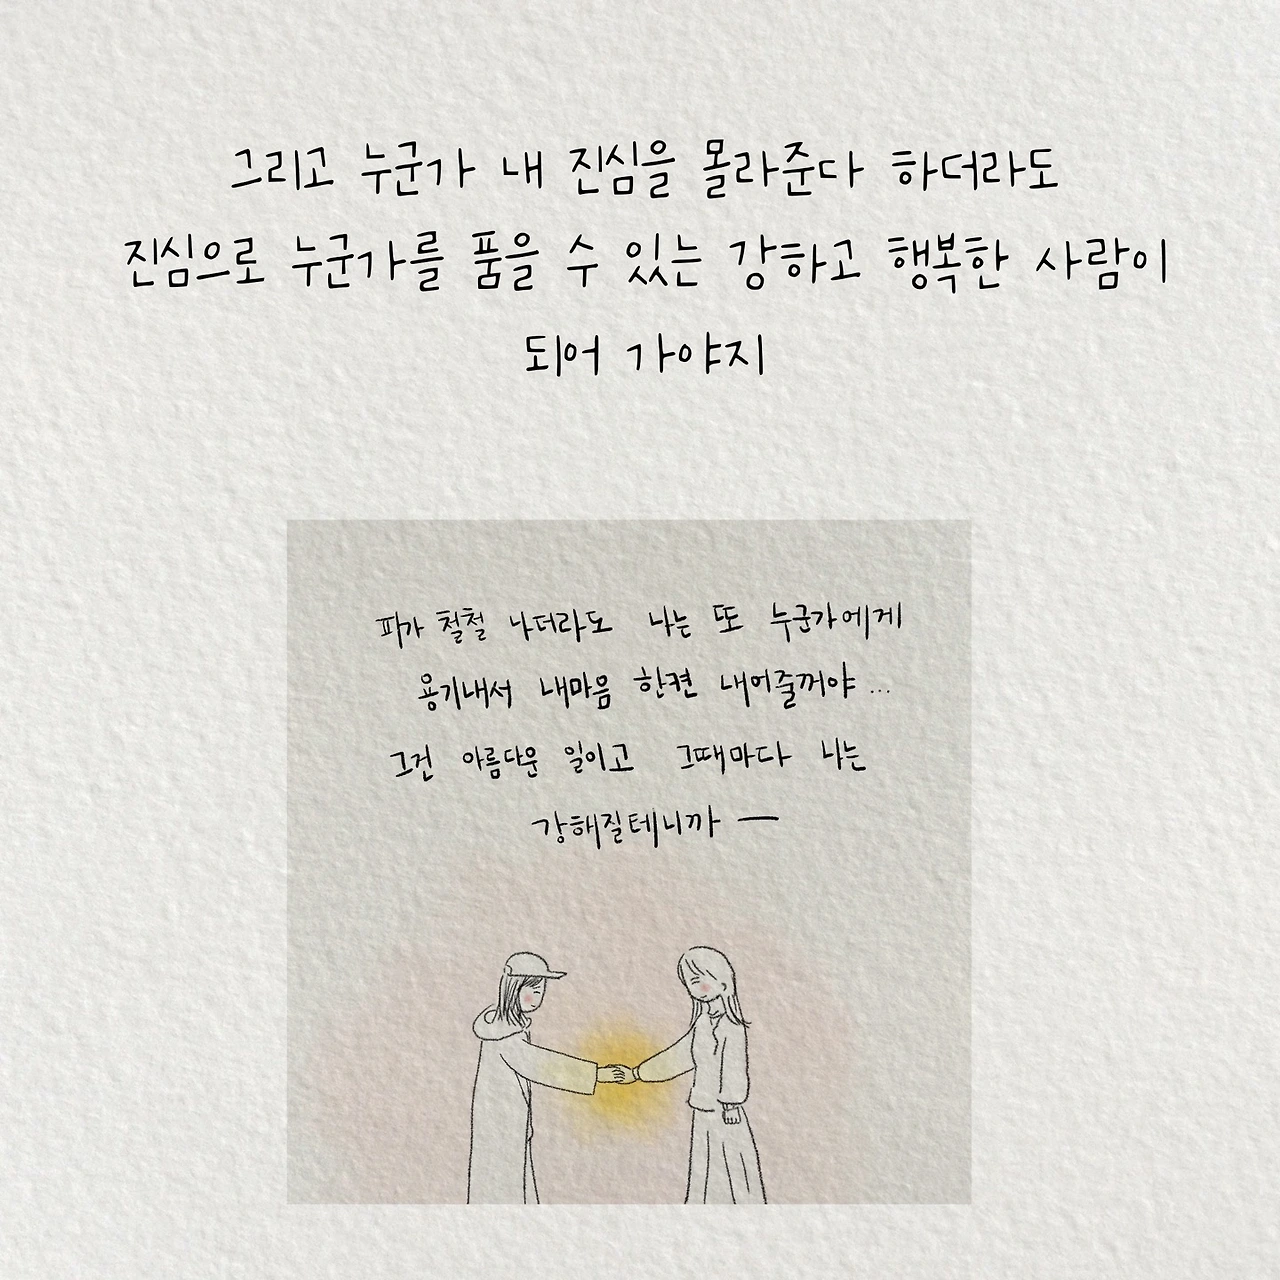 그리고 누군가 내 진심을 몰라준다 하더라도
진심으로 누군가를 품을 수 있는 강하고 행복한 사람이
되어 가야지
피가 철철 나더라도 나는 또 누군가에게
용기내서 내마음 한켠 내어줄꺼야...
그건 아름다운 일이고 그때마다 나는
강해질테니까 —